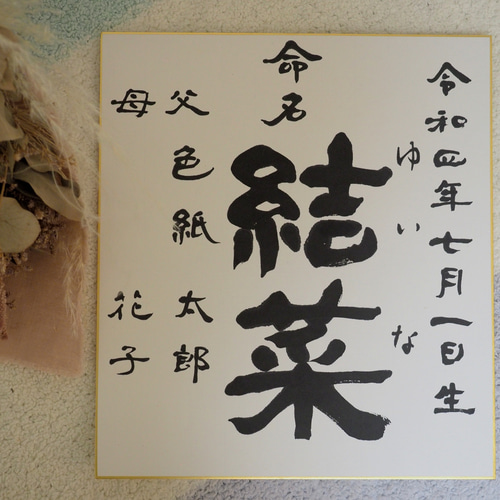 令和四年七月一日生
命名
結菜
ゆいな
父 色紙 太郎
母 花子